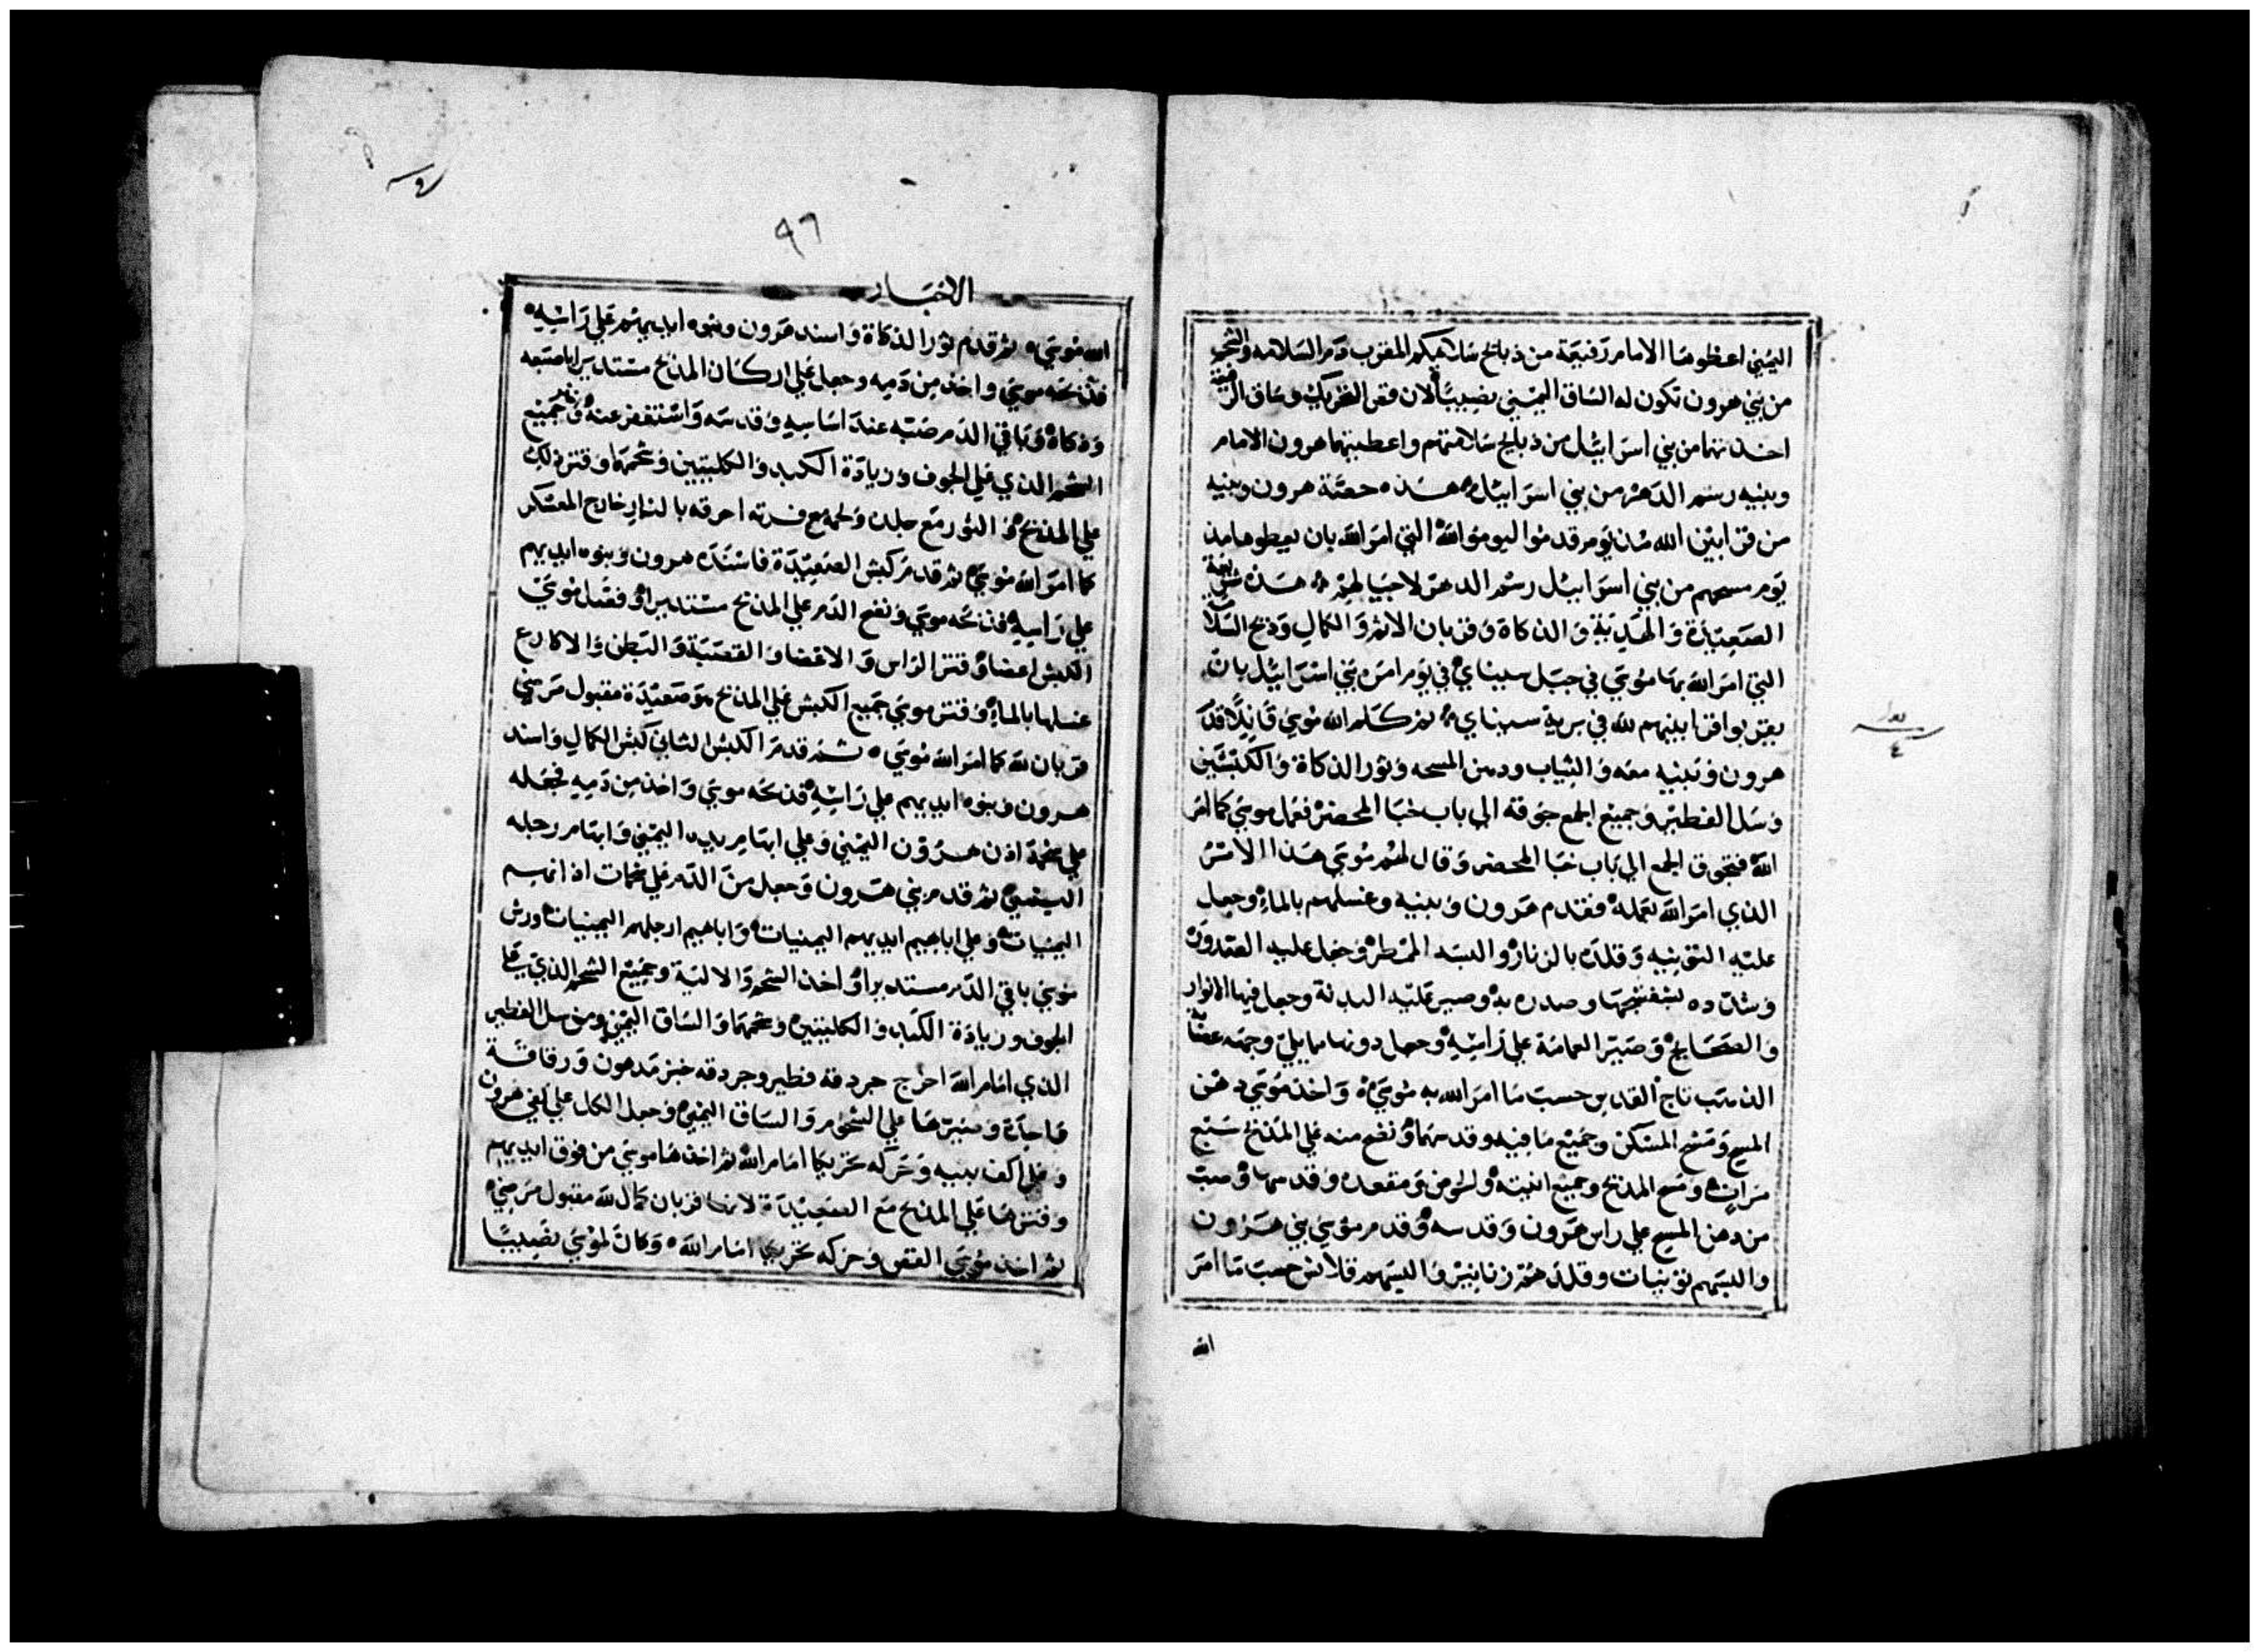 اليمني اعطوها الامام رفيعة من ذبايح سلامتكم المقرب دم السلامه والشحم
من بني هرون تكون له الساق اليمني نصيبا لان قص التحريك وساق الرفيعة
اخذتهما من بني اسراييل من ذبايح سلامتهم واعطيتهما هرون الامام
وبنيه رسم الدهر من بني اسراييل هذه حصة هرون وبنيه
من قرابين الله من يوم قدموا ليوموا لله التي امر الله بان يعطوها من
يوم مسحهم من بني اسراييل رسم الدهر لاجيالهم هذه شريعة
الصعيدة والهدية والذكاة وقربان الاثم والكمال وذبح السلامة
التي امر الله بها موسي في جبل سيناي في يوم امره بني اسراييل بان
يقربوا قرابينهم لله في برية سيناي ثم كلم الله موسي قايلا قدم
هرون وبنيه معه والثياب ودهن المسحه وثور الذكاة والكبشين
وسل الفطير وجميع الجمع جوقة الي باب خبا المحضر ففعل موسي كما امر
الله فتجوق الجمع الي باب خبا المحضر وقال لهم موسي هذا الامر
الذي امر الله بعمله فقدم هرون وبنيه وغسلهم بالماء وجعل
عليه التونيه وقلده بالزنار والبسه الممطر وجعل عليه الصدرة
وشده بشفشجها وصدره به وصير عليه البدنة وجعل فيها الانوار
والصحايح وصير العمامة علي راسه وجعل دونها مما يلي وجهه عصابة
الذهب تاج القدس حسب ما امر الله به موسي واخذ موسي دهن
المسح ومسح المسكن وجميع ما فيه وقدسها ونضح منه علي المذبح سبع
مرات ومسح المذبح وجميع انيته والحوض ومقعده وقدسها وصب
من دهن المسح علي راس هرون وقدسه وقدم موسي بني هرون
والبسهم تونيات وقلدهم زنانير والبسهم قلانس حسب ما امر
الله
٩٦
الاخبار
الله موسي ثم قدم ثور الذكاة واسند هرون وبنوه ايديهم علي راسه
فذبحه موسي واخذ من دمه وجعل علي اركان المذبح مستديرا باصبعه
وذكاه وباقي الدم صبه عند اساسه وقدسه واستغفر عنه واخذ جميع
الشحم الذي علي الجوف وزيادة الكبد والكليتين وشحمها وقتر ذلك
علي المذبح والثور مع جلده ولحمه مع فرثه احرقه بالنار خارج المعسكر
كما امر الله موسي ثم قدم كبش الصعيدة فاسنده هرون وبنوه ايديهم
علي راسه فذبحه موسي ونضح الدم علي المذبح مستديرا وفصل موسي
الكبش اعضا وقتر الراس والاعضا والقصبة والبطن والاكارع
غسلها بالماء وقتر موسي جميع الكبش علي المذبح هو صعيدة مقبول مرضي
قربان لله كما امر الله موسي ثم قدم الكبش الثاني كبش الكمال واسند
هرون وبنوه ايديهم علي راسه فذبحه موسي واخذ من دمه فجعله
علي شحمة اذن هرون اليمني وعلي ابهام يده اليمني وابهام رجله
اليمني ثم قدم بني هرون وجعل من الدم علي شحمات اذانهم
اليمنيات وعلي اباهيم ايديهم اليمنيات واباهيم ارجلهم اليمنيات ورش
موسي باقي الدم مستديرا واخذ الشحم والالية وجميع الشحم الذي علي
الجوف وزيادة الكبد والكليتين وشحمها والساق اليمني ومن سل الفطير
الذي امام الله اخرج جردقة فطير وجردقه خبز مدهون ورقاقة
واحدة وصيرها علي الشحوم والساق اليمني وجعل الكل علي كفي هرون
وعلي اكف بنيه وحركه تحريكا امام الله ثم اخذها موسي من فوق ايديهم
وقترها علي المذبح مع الصعيدة لانها قربان كمال لله مقبول مرضي
ثم اخذ موسي القص وحركه تحريكا امام الله وكان لموسي نصيبا